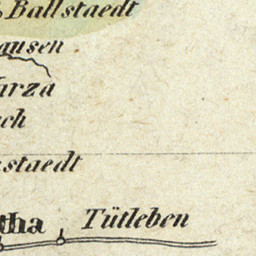 Ballstaedt
ausen
arza
ch
staedt
tha Tütleben